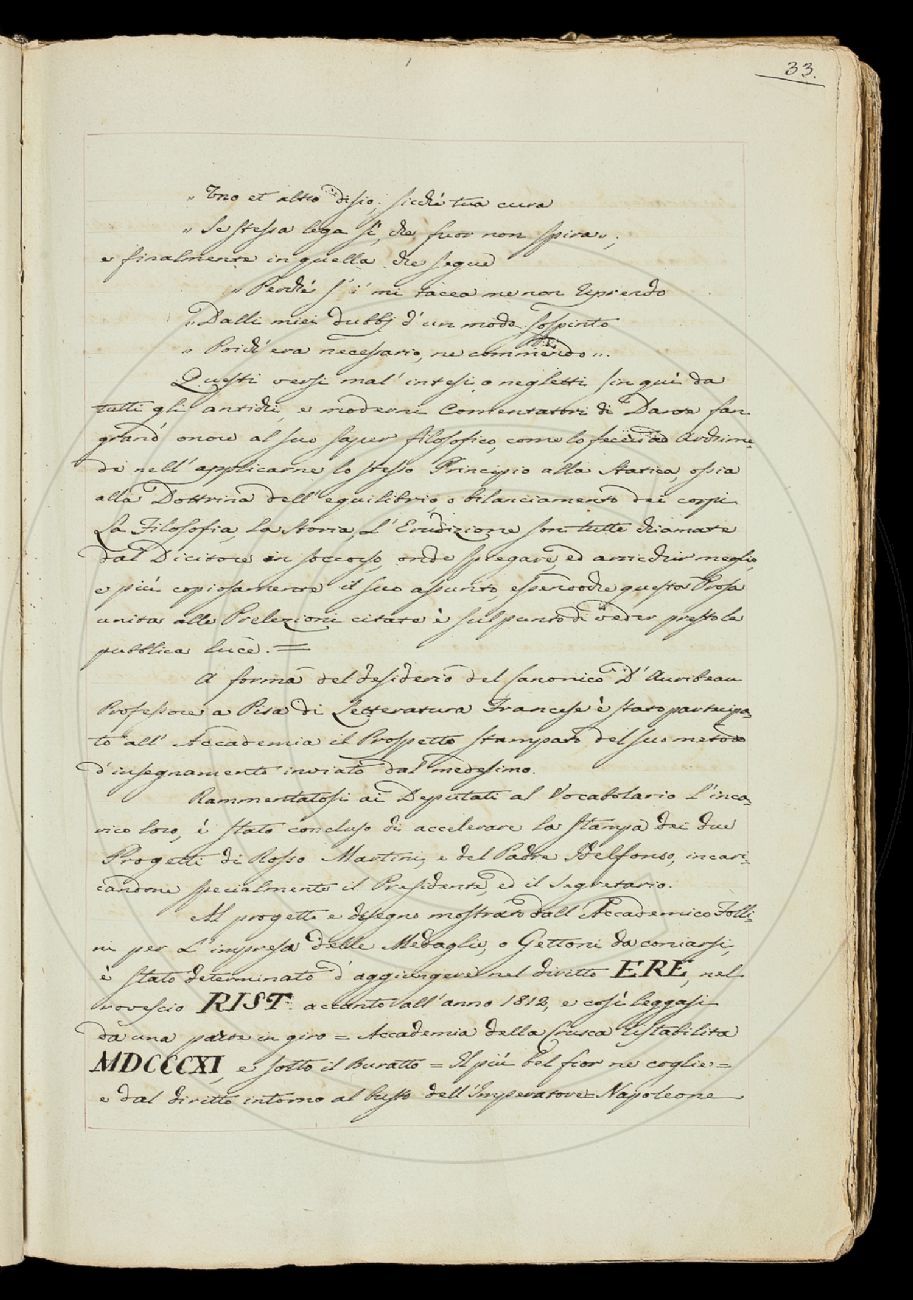 33.
„ Uno et altro disio, sicchè tua cura
„ Se stessa lega sì, che fuor non spira„;
e finalmente in quella che segue
„ Perchè s'i' mi tacea me non riprendo
„ Dalli miei dubbj d'un modo sospinto
„ Poich'era necessario, ne commendo„.
Questi versi mal'intesi, o negletti sin quì da
tutti gli antichi, e moderni Comentattri di Dante fan
grand'onore al suo saper filosofico, come lo fece ad Archime=
de nell'applicarne lo stesso Principio alla Statica, ossia
alla Dottrina dell'equilibrio, o bilanciamento dei corpi
La Filosofia, la Storia, L'Erudizione son tutte chiamate
dal Dicitore in soccorso, onde spiegare, ed arricchir meglio,
e più copiosamente il suo assunto, essendochè questa Prosa
unita alle Prelezioni citate è sul punto di veder presto la
pubblica luce. =
A forma del desiderio del Canonico D'Auribeau
Professore a Pisa di Letteratura Francese è stato partecipa=
to all'Accademia il Prospetto stampato del suo metodo
d'insegnamento inviato dal medesimo.
Rammentatosi ai Deputati al Vocabolario L'inca=
rico loro, è stato concluso di accelerare la stampa dei due
Progetti di Rosso Martini, e del Padre Idelfonso, incari=
candone specialmente il Presidente, ed il Segretario.
Al progetto e disegno mostrato dall'Accademico Folli=
ni per L'impresa delle Medaglie, o Gettoni da coniarsi,
è stato determinato d'aggiungere nel diritto ERE, nel
rovescio RIST. accanto all'anno 1812, e così leggasi
da una parte in giro = Accademia della Crusca ristabilita
MDCCCXI, e sotto il Buratto = Il più bel fior ne coglie =
e dal diritto intorno al busto dell'Imperatore = Napoleone